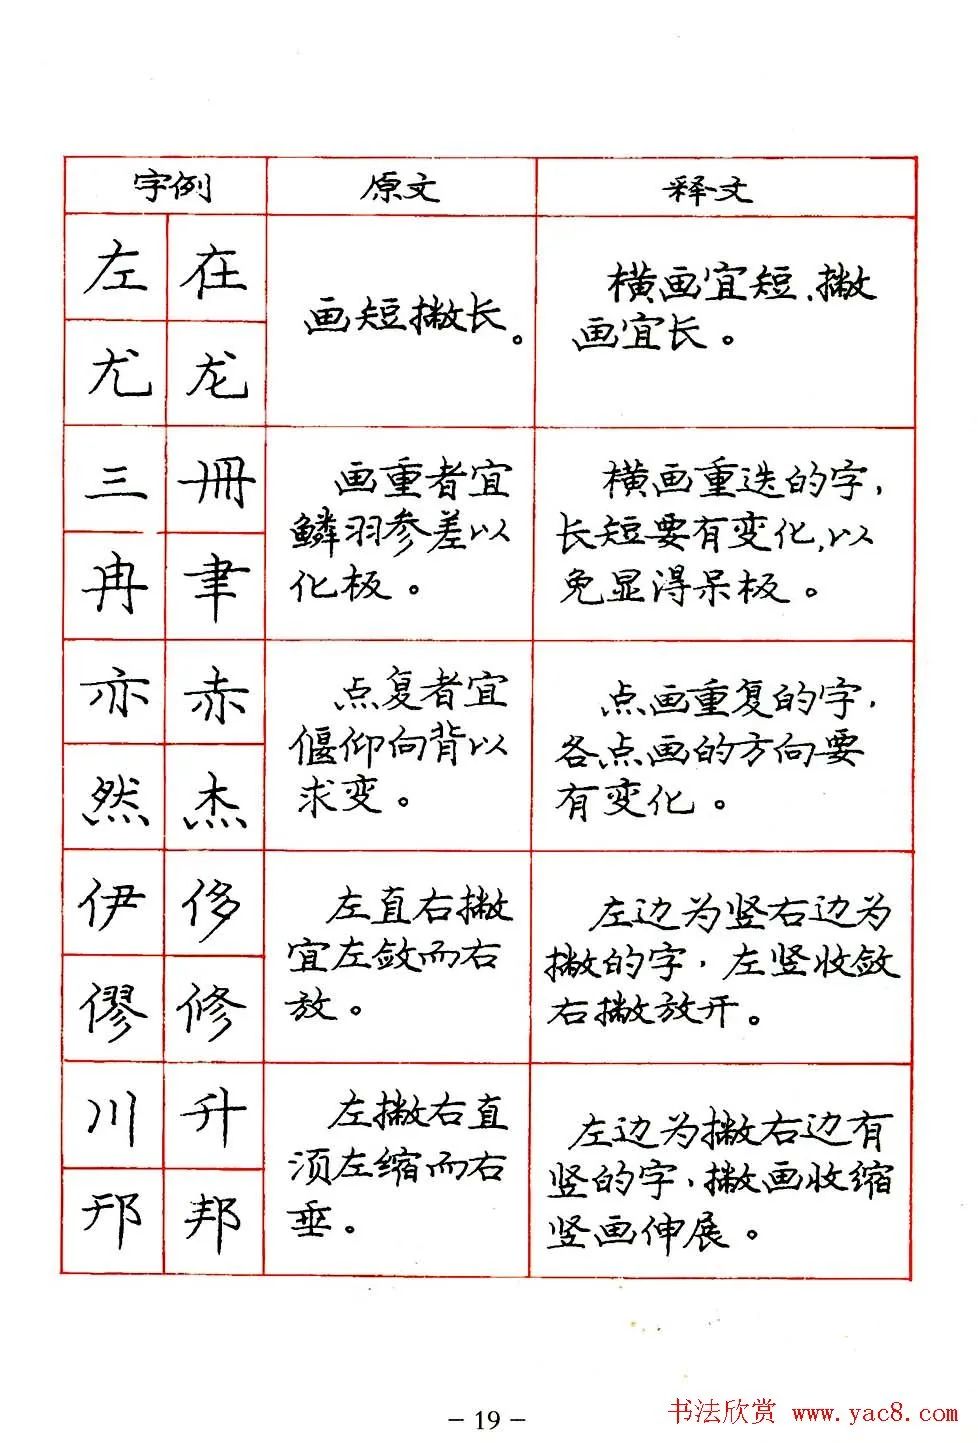 字例 原文 释文
左 在
尤 龙
画短撇长。
横画宜短、撇
画宜长。
三 冊
冉 聿
画重者宜
鳞羽参差以
化板。
横画重迭的字,
长短要有变化,以
免显得呆板。
亦 赤
然 杰
点复者宜
偃仰向背以
求变。
点画重复的字,
各点画的方向要
有变化。
伊 侈
僇 修
左直右撇
宜左敛而右
放。
左边为竖右边为
撇的字,左竖收敛
右撇放开。
川 升
邘 邦
左撇右直
须左缩而右
垂。
左边为撇右边有
竖的字,撇画收缩
竖画伸展。
- 19 -
书法欣赏 www.yac8.com